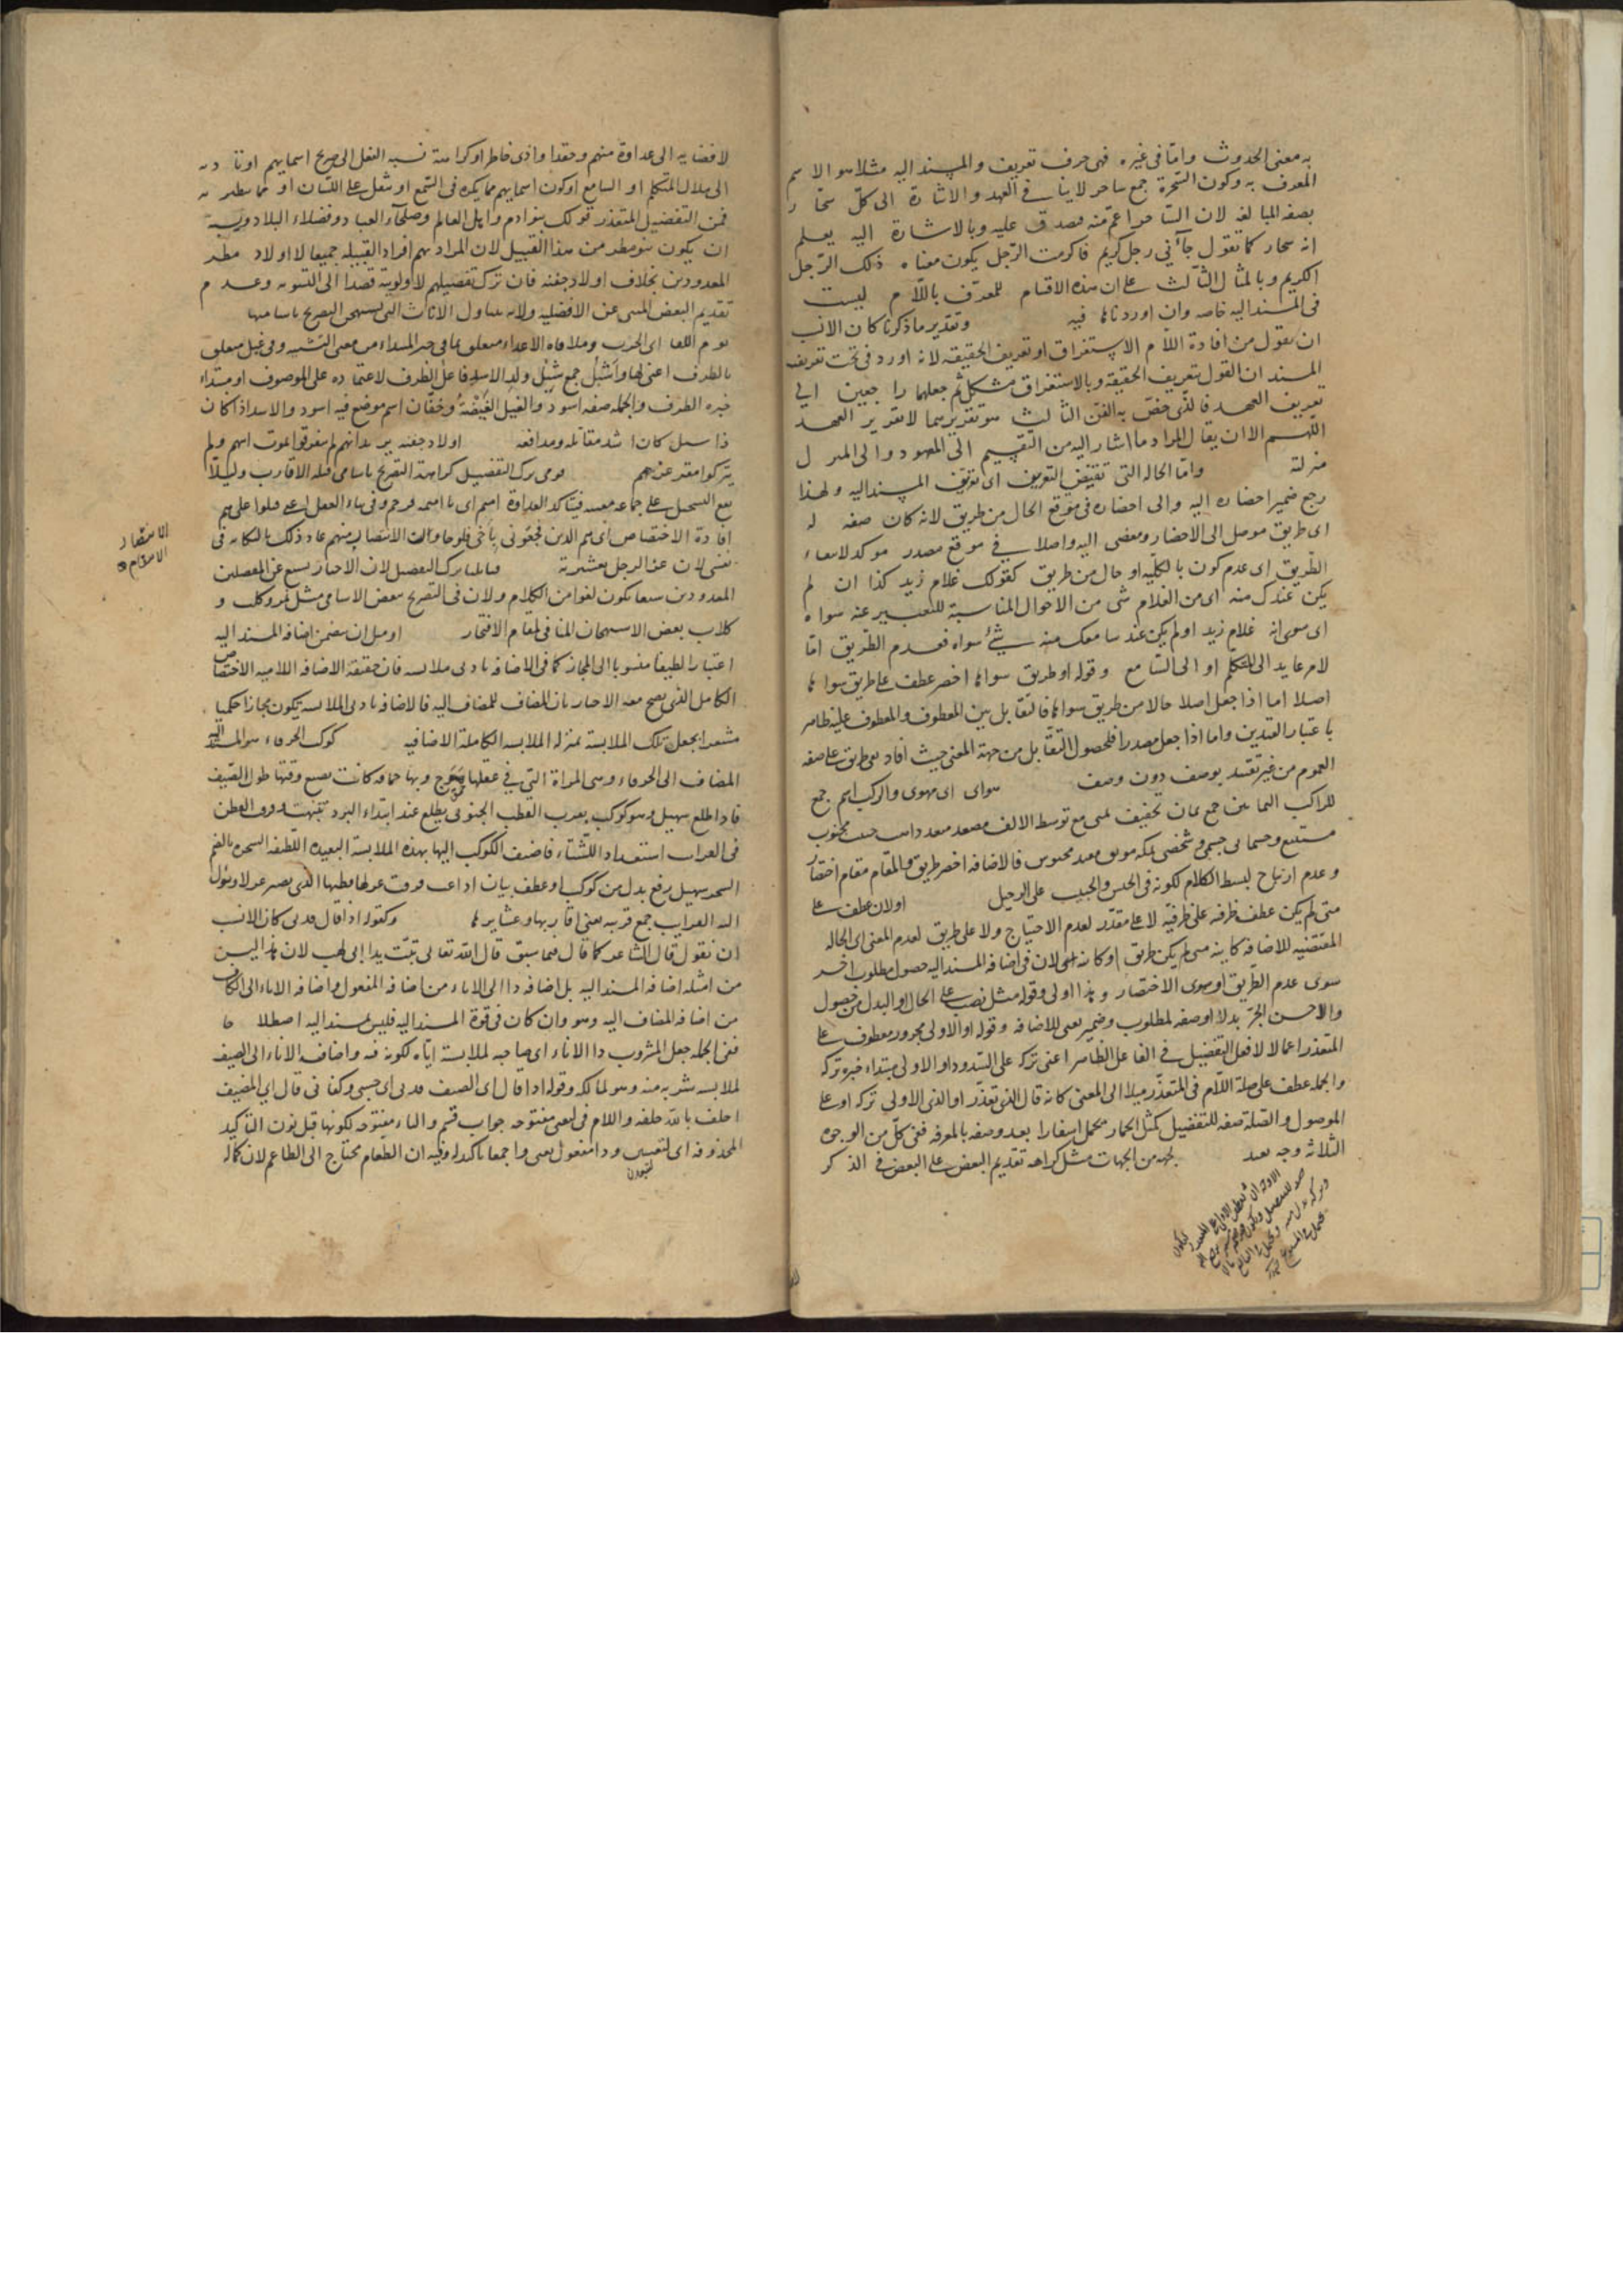 به معنى الحدوث واما فى غيره فهى حرف تعريف والمسند اليه مثلا هو الاسم
المعرف به وكون السحرة جمع ساحر لا ينافى العهد والاشارة الى كل سحار
بصفه المبالغه لان الساحر اعم منه فصدق عليه وبالاشارة اليه يعلم
انه سحار كما تقول جاءنى رجل كريم فاكرمت الرجل يكون معناه ذلك الرجل
الكريم وبالمثال الثالث على ان هذه الاقسام للمعرف باللام ليست
فى المسند اليه خاصه وان اوردناها فيه وتقدير ما ذكرنا كان الانسب
ان يقول من افادة اللام الاستغراق او تعريف الحقيقه لانه اورد فى تحت تعريف
المسند ان القول بتعريف الحقيقة وبالاستغراق مشكل ثم جعلهما راجعين الى
تعريف العهد فالذى خص به الفن الثالث هو تقريرهما لا تقرير العهد
اللهم الا ان يقال المراد ما اشار اليه من التقسيم الى المعهود والى المنزل
منزلته واما الحاله التى تقتضى التعريف اى تعريف المسند اليه ولهذا
رجع ضمير احضاره اليه والى احضاره فى موقع الحال من طريق لانه كان صفه له
اى طريق موصل الى الاحضار ومفضى اليه واصلا فى موقع مصدر موكد لانتفاء
الطريق اى عدم كون بالكليه او حال من طريق كقولك غلام زيد كذا ان لم
يكن عندك منه اى من الغلام شى من الاحوال المناسبة للتعبير عنه سواه
اى سوى انه غلام زيد او لم يكن عند سامعك منه شئ سواه فعدم الطريق اما
لامر عايد الى المتكلم او الى السامع وقوله او طريق سواها اخصر عطف على طريق سواها
اصلا اما اذا جعل اصلا حالا من طريق سواها فالتقابل بين المعطوف والمعطوف عليه ظاهر
باعتبار القيدين واما اذا جعل مصدرا فلحصول التقابل من جهة المعنى حيث افاد نفى طريق على صفه
العموم من غير تقييد بوصف دون وصف هواى اى مهوى والركب اسم جمع
للراكب اليمانين جمع يمان تخفيف يمنى مع توسط الالف مصعد مبعد ذاهب جنيب مجنوب
مستتبع وجسمانى جسمى وشخصى بمكه موثق مقيد محبوس فالاضافه اخصر طريق والمقام مقام اختصار
وعدم ارتياح لبسط الكلام لكونه فى الحبس والحبيب على الرحيل او لان عطف على
متى لم يكن عطف ظرفه على ظرفيه لا على مقدر لعدم الاحتياج ولا على طريق لعدم المعنى اى الحاله
المقتضيه للاضافه كاينه متى لم يكن طريق او كاينه لان فى اضافه المسند اليه حصول مطلوب اخر
سوى عدم الطريق او سوى الاختصار وهذا اولى وقوله مثل نصب على الحال او البدل من حصول
والاحسن الجر بدلا او صفه لمطلوب وضمير يعنى للاضافه وقوله او الاولى مجرور معطوف على
المتعذر اعمالا لافعل التفضيل فى الفاعل الظاهر اعنى تركه على الشذوذ او الاولى مبتداء خبره تركه
والجمله عطف على صلة اللام فى المتعذر ميلا الى المعنى كانه قال الذى تعذر او الذى الاولى تركه او على
الموصول والصلة صفه للتفضيل كمثل الحمار يحمل اسفارا بعد وصفه بالمعرفه ففى كل من الوجوه
الثلاثه وجه بعيد لجهه من الجهات مثل كراهه تقديم البعض على البعض فى الذكر
لافضايه الى عداوة منهم وحقدا واذى خاطر او كراهة نسبه الفعل الى صريح اسمايهم او
الى ملال المتكلم او السامع او كون اسمايهم مما يكره فى السمع او يثقل على اللسان او
فمن التفضيل المتعذر قولك بنو ادم واهل العالم وصلحاء العباد وفضلاء البلاد ويشبه
ان يكون بنو مطر من هذا القبيل لان المراد بهم افراد القبيله جميعا لا اولاد مطر
المعدودين بخلاف اولاد جفنه فان ترك تفصيلهم لاولويته قصدا الى التسويه وعدم
تقديم البعض المنبى عن الافضليه ولانه يتناول الاناث التى يستهجن التصريح باساميها
يوم اللقا اى الحرب وملاقاه الاعداء متعلق بما فى خبر المبتداء من معنى التشبيه وفى غيل متعلق
بالظرف اعنى لها واشبل جمع شبل ولد الاسد فاعل الظرف لاعتماده على الموصوف او مبتداء
خبره الظرف والجمله صفه اسود والغيل الغيضة وخفان اسم موضع فيه اسود والاسد اذا كان
ذا شبل كان اشد مقاتله ومدافعه اولاد جفنه يريد انهم لم يتفرقوا لموت ابيهم ولم
يتركوا مقر عزهم قومى ترك التفصيل كراهة التصريح باسامى قتله الاقارب وليلا
يقع التسجيل على جماعه معينه فيتاكد العداوة
افادة الاختصاص اى هم الذين فجعونى باخى فلو حاولت الانتصار منهم عاد ذلك بالنكايه فى
نفسى لان عز الرجل بعشيرته
المعدودين سبعا يكون لغوا من الكلام ولان فى التصريح ببعض الاسامى مثل نمر وكلب و
كلاب بعض الاستهجان المنافى لمقام الافتخار او مثل ان يتضمن اضافه المسند اليه
اعتبارا لطيفا منسوبا الى المجاز كما فى الاضافه بادنى ملابسه فان حقيقة الاضافه اللاميه الاختصاص
الكامل الذى يصح معه الاخبار بان المضاف للمضاف اليه فالاضافه بادنى الملابسه يكون مجازا حكميا
مشعرا بجعل تلك الملابسة بمنزله الملابسه الكاملة الاضافيه كوكب الخرقاء هو المسند اليه
المضاف الى الخرقاء وهى المراة التى فى عقلها هوج وبها حماقه كانت تضيع وقتها طول الصيف
فاذا طلع سهيل وهو كوكب بقرب القطب الجنوبى يطلع عند ابتداء البرد تنبهت وفرقت القطن
فى القرايب استعدادا للشتاء فاضيف الكوكب اليها بهذه الملابسة البعيده اللطيفه السحره بالضم
السحر سهيل رفع بدل من كوكب او عطف بيان اذاعت فرقت غزلها قطنها الذى يصير غزلا ويؤل
اليه القرايب جمع قريبه يعنى اقاربها وعشايرها وكقوله اذا قال قدنى كان الانسب
ان نقول قال الشاعر كما قال فيما سبق قال الله تعالى تبت يدا ابى لهب لان هذا ليس
من امثله اضافه المسند اليه بل اضافه ذا الى الاناء من اضافه المفعول واضافه الاناء الى الكاف
من اضافه المضاف اليه وهو وان كان فى قوة المسند اليه فليس بمسند اليه اصطلاحا
ففى الجمله جعل المشروب ذا الاناء اى صاحبه لملابسة اياه لكونه فيه واضاف الاناء الى الضيف
لملابسه شربه منه وهو لمالكه وقوله اذا قال اى الضيف قدنى اى حسبى وكفانى قال اى المضيف
احلف بالله حلفه واللام فى لتغنى مفتوحه جواب قسم والياء مفتوحه لكونها قبل نون التاكيد
المحذوفه اى لتغنين وذا مفعول يعنى واجمعا تاكيد له وفيه ان الطعام محتاج الى الطاعم لان كماله